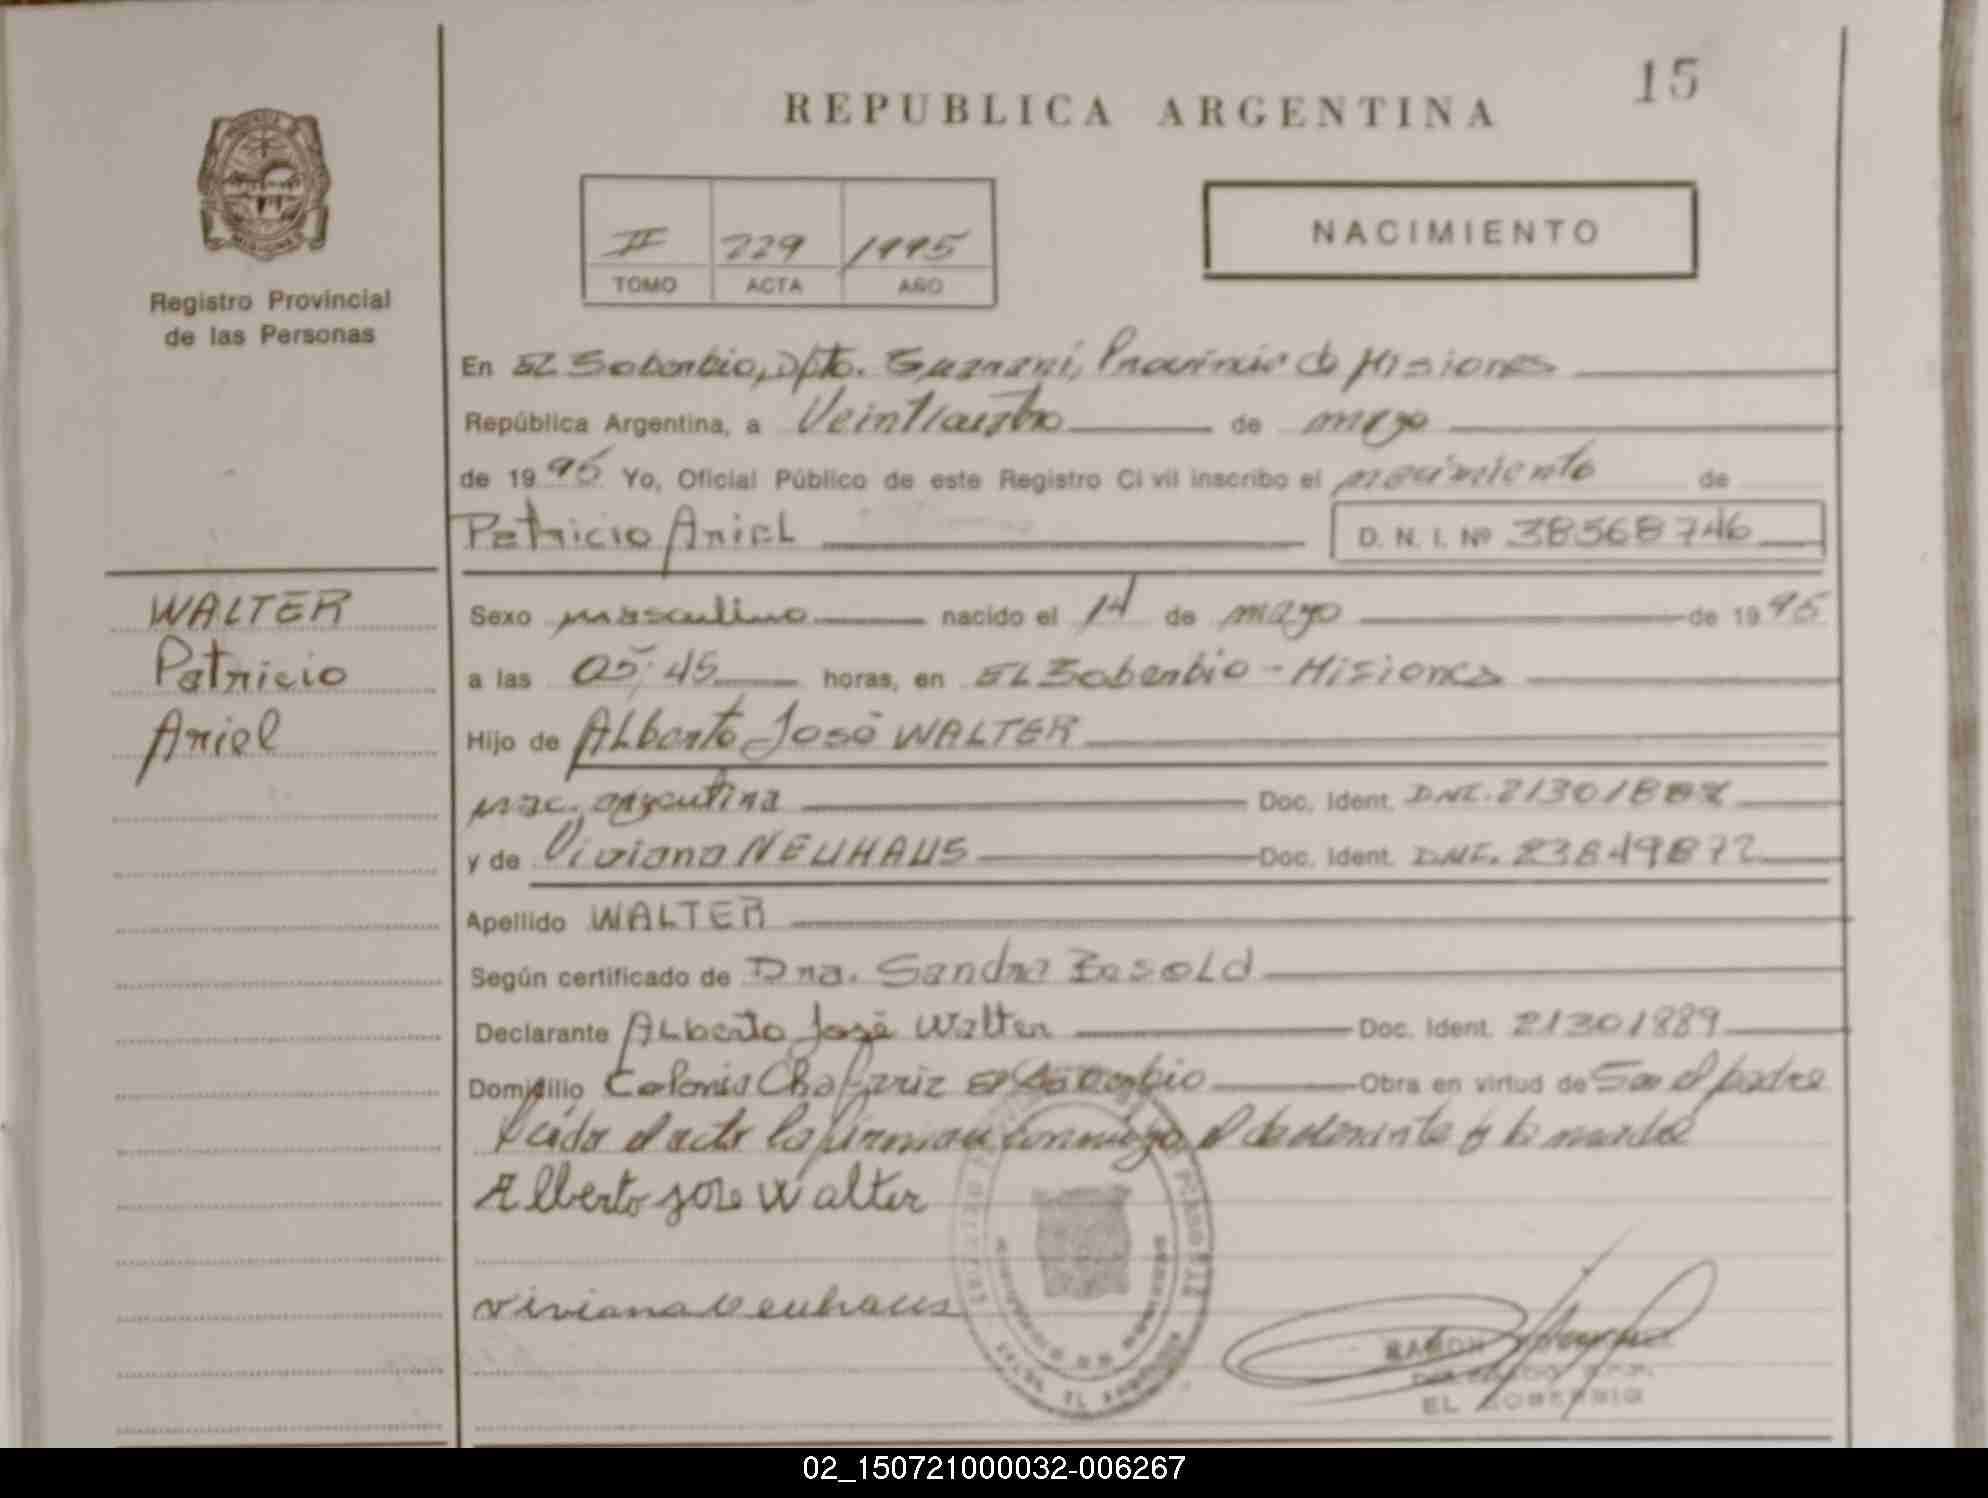 15
REPUBLICA ARGENTINA
NACIMIENTO
II 229 1995
TOMO ACTA AÑO
Registro Provincial
de las Personas
En El Soberbio, Dpto. Guaraní, Provincia de Misiones
República Argentina, a Veinticuatro de mayo
de 19 95 Yo, Oficial Público de este Registro Civil inscribo el nacimiento de
Patricio Ariel D. N. I. Nº 38568746
WALTER
Patricio
Ariel
Sexo masculino nacido el 14 de mayo de 19 95
a las 05:45 horas, en El Soberbio - Misiones
Hijo de Alberto José WALTER
nac. argentina Doc. Ident. DNI.
y de Viviana NEUHAUS Doc. Ident. DNI. 23849872
Apellido WALTER
Según certificado de Dra. Sandra Basold
Declarante Alberto José Walter Doc. Ident. 21301889
Domicilio Colonia Chafariz El Soberbio Obra en virtud de Ser el padre
Leída el acta la firman conmigo el declarante y la madre
Alberto jose Walter
viviana Neuhaus
RAMON
EL SOBERBIO
02_150721000032-006267